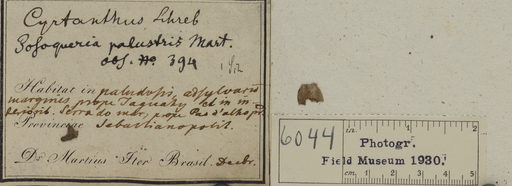 Cyrtanthus Schreb
Posoqueria palustris Mart.
obs. No. 394
Habitat in paludosis, ad sylvarum
margines prope Taguahy et in m
Serra do mar, prope
Provinciae Sebastianopolit.
Dr. Martius Iter Brasil. Decbr.
6044
in. 1 2
Photogr.
Field Museum 1930.
cm. 1 2 3 4 5